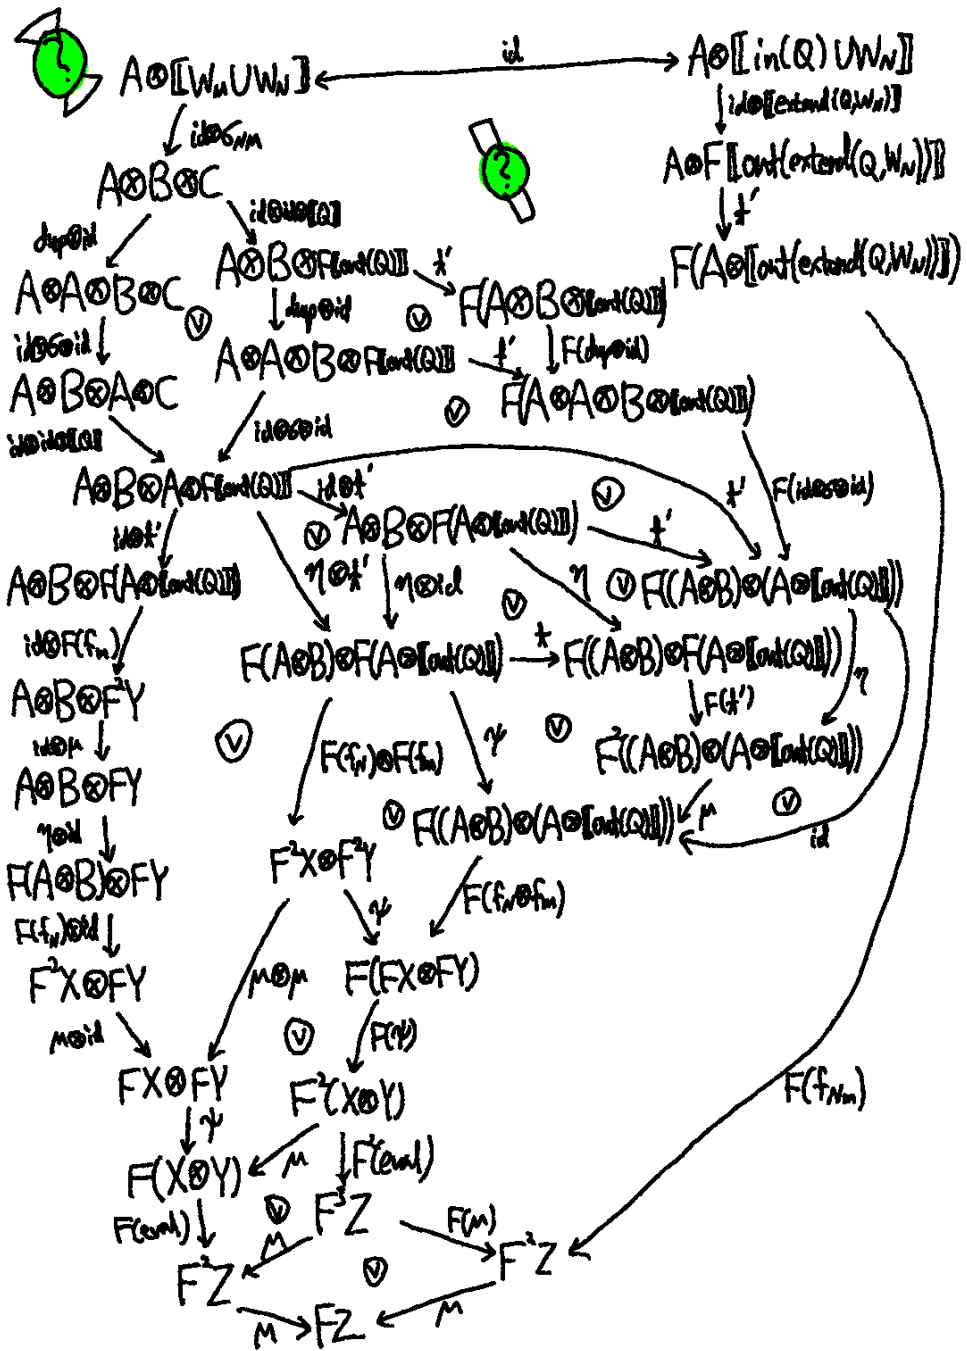 ?
A⊗⟦W_M∪W_N⟧
id
A⊗⟦in(Q)∪W_N⟧
id⊗σ_NM
id⊗⟦extend(Q,W_N)⟧
?
A⊗B⊗C
A⊗F⟦out(extend(Q,W_N))⟧
dup⊗id
id⊗id⊗⟦Q⟧
t'
A⊗B⊗F⟦out(Q)⟧
t'
F(A⊗⟦out(extend(Q,W_N))⟧)
A⊗A⊗B⊗C
v
dup⊗id
v
F(A⊗B⊗⟦out(Q)⟧)
id⊗σ⊗id
A⊗A⊗B⊗F⟦out(Q)⟧
t'
F(dup⊗id)
A⊗B⊗A⊗C
v
F(A⊗A⊗B⊗⟦out(Q)⟧)
id⊗id⊗⟦Q⟧
id⊗σ⊗id
A⊗B⊗A⊗F⟦out(Q)⟧
id⊗t'
v
t'
F(id⊗σ⊗id)
id⊗t'
v
A⊗B⊗F(A⊗⟦out(Q)⟧)
t'
A⊗B⊗F(A⊗⟦out(Q)⟧)
η⊗t'
η⊗id
v
η
v
F((A⊗B)⊗(A⊗⟦out(Q)⟧))
id⊗F(f_M)
F(A⊗B)⊗F(A⊗⟦out(Q)⟧)
t
F((A⊗B)⊗F(A⊗⟦out(Q)⟧))
η
A⊗B⊗F²Y
F(t')
id⊗μ
v
F(f_N)⊗F(f_M)
ψ
v
F²((A⊗B)⊗(A⊗⟦out(Q)⟧))
A⊗B⊗FY
μ
v
η⊗id
v
F((A⊗B)⊗(A⊗⟦out(Q)⟧))
id
F(A⊗B)⊗FY
F²X⊗F²Y
F(f_N⊗f_M)
F(f_N)⊗id
ψ
F²X⊗FY
μ⊗μ
F(FX⊗FY)
μ⊗id
v
F(ψ)
FX⊗FY
F²(X⊗Y)
F(f_NM)
ψ
F(X⊗Y)
μ
F²(eval)
F(eval)
v
F³Z
F(μ)
μ
F²Z
v
F²Z
μ
FZ
μ